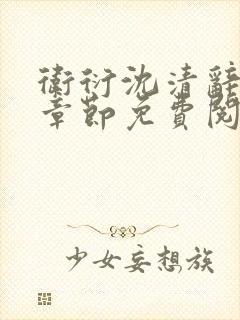 衛衍沈清辭
章節免費閱
少女妄想族